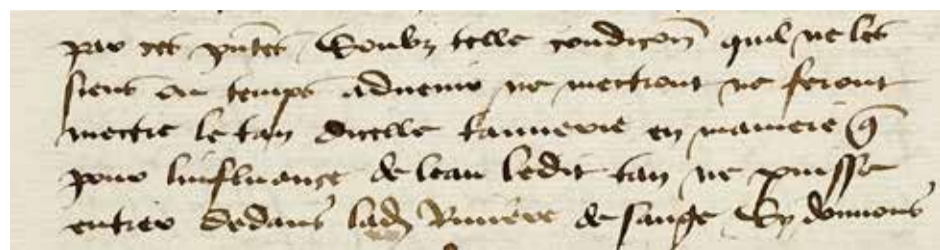 par ces pntes Soubz telle condicon quil ne les
siens ou temps advenir ne mectront ne feront
mectre le tan dicelle tannerie en maniere q
pour linfluance de leau ledit tan ne puisse
entrer dedans lad Riviere de sange Sy donnons